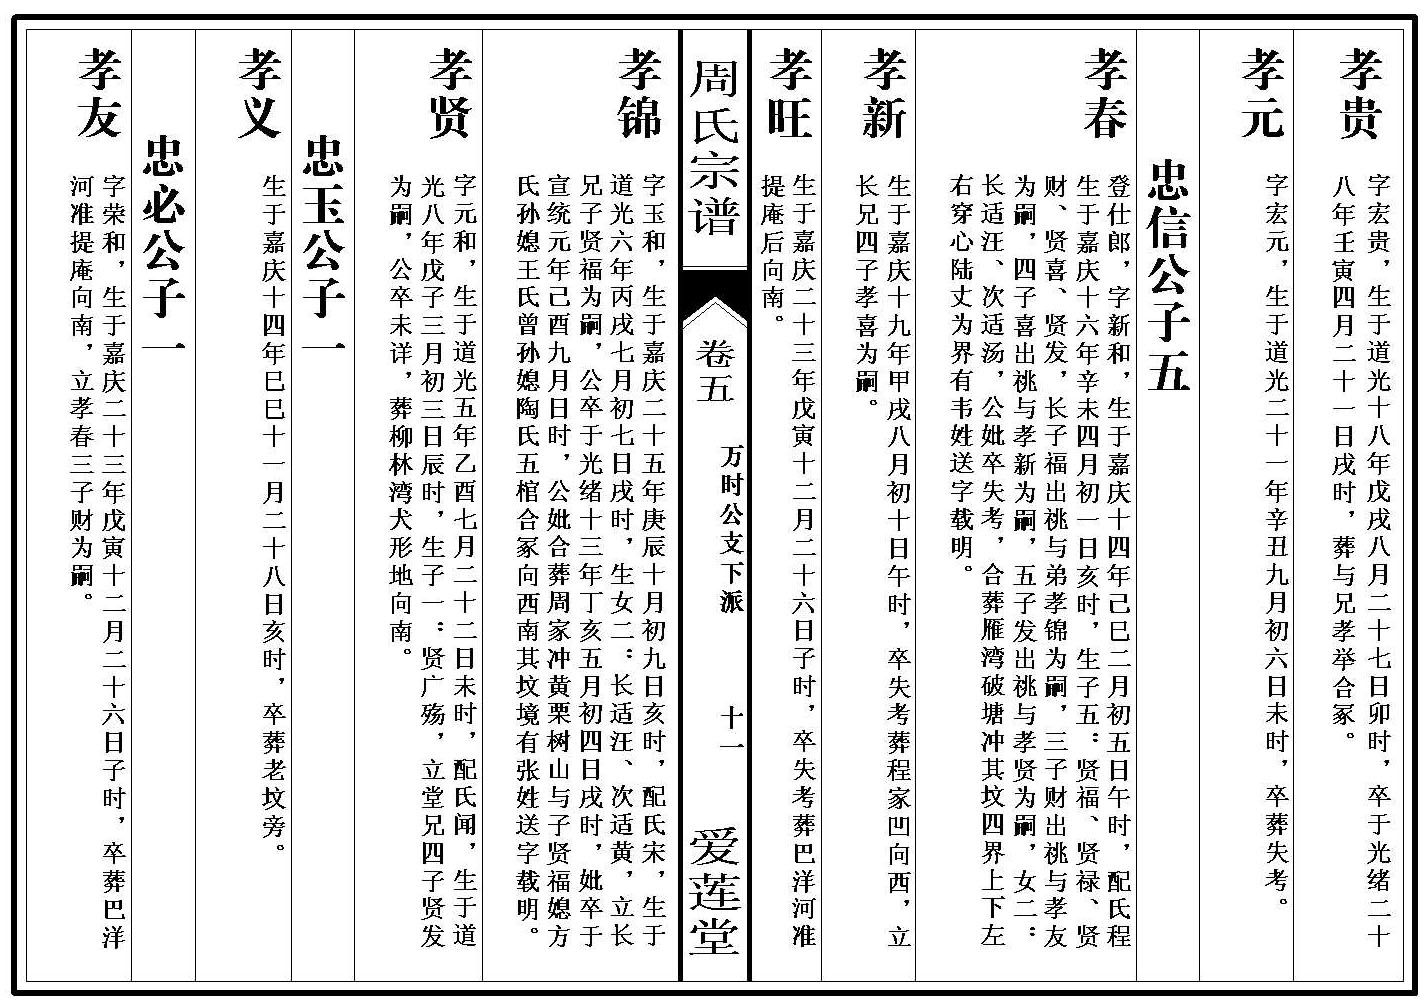 孝贵
字宏贵，生于道光十八年戊戌八月二十七日卯时，卒于光绪二十
八年壬寅四月二十一日戌时，葬与兄孝举合冢。
孝元
字宏元，生于道光二十一年辛丑九月初六日未时，卒葬失考。
忠信公子五
孝春
登仕郎，字新和，生于嘉庆十四年己巳二月初五日午时，配氏程
生于嘉庆十六年辛未四月初一日亥时，生子五：贤福、贤禄、贤
财、贤喜、贤发，长子福出祧与弟孝锦为嗣，三子财出祧与孝友
为嗣，四子喜出祧与孝新为嗣，五子发出祧与孝贤为嗣，女二：
长适汪、次适汤，公妣卒失考，合葬雁湾破塘冲其坟四界上下左
右穿心陆丈为界有韦姓送字载明。
孝新
生于嘉庆十九年甲戌八月初十日午时，卒失考葬程家凹向西，立
长兄四子孝喜为嗣。
孝旺
生于嘉庆二十三年戊寅十二月二十六日子时，卒失考葬巴洋河准
提庵后向南。
周氏宗谱
卷五
万时公支下派
十一
爱莲堂
孝锦
字玉和，生于嘉庆二十五年庚辰十月初九日亥时，配氏宋，生于
道光六年丙戌七月初七日戌时，生女二：长适汪、次适黄，立长
兄子贤福为嗣，公卒于光绪十三年丁亥五月初四日戌时，妣卒于
宣统元年己酉九月日时，公妣合葬周家冲黄栗树山与子贤福媳方
氏孙媳王氏曾孙媳陶氏五棺合冢向西南其坟境有张姓送字载明。
孝贤
字元和，生于道光五年乙酉七月二十二日未时，配氏闻，生于道
光八年戊子三月初三日辰时，生子一：贤广殇，立堂兄四子贤发
为嗣，公卒未详，葬柳林湾犬形地向南。
忠玉公子一
孝义
生于嘉庆十四年巳巳十一月二十八日亥时，卒葬老坟旁。
忠必公子一
孝友
字荣和，生于嘉庆二十三年戊寅十二月二十六日子时，卒葬巴洋
河准提庵向南，立孝春三子财为嗣。